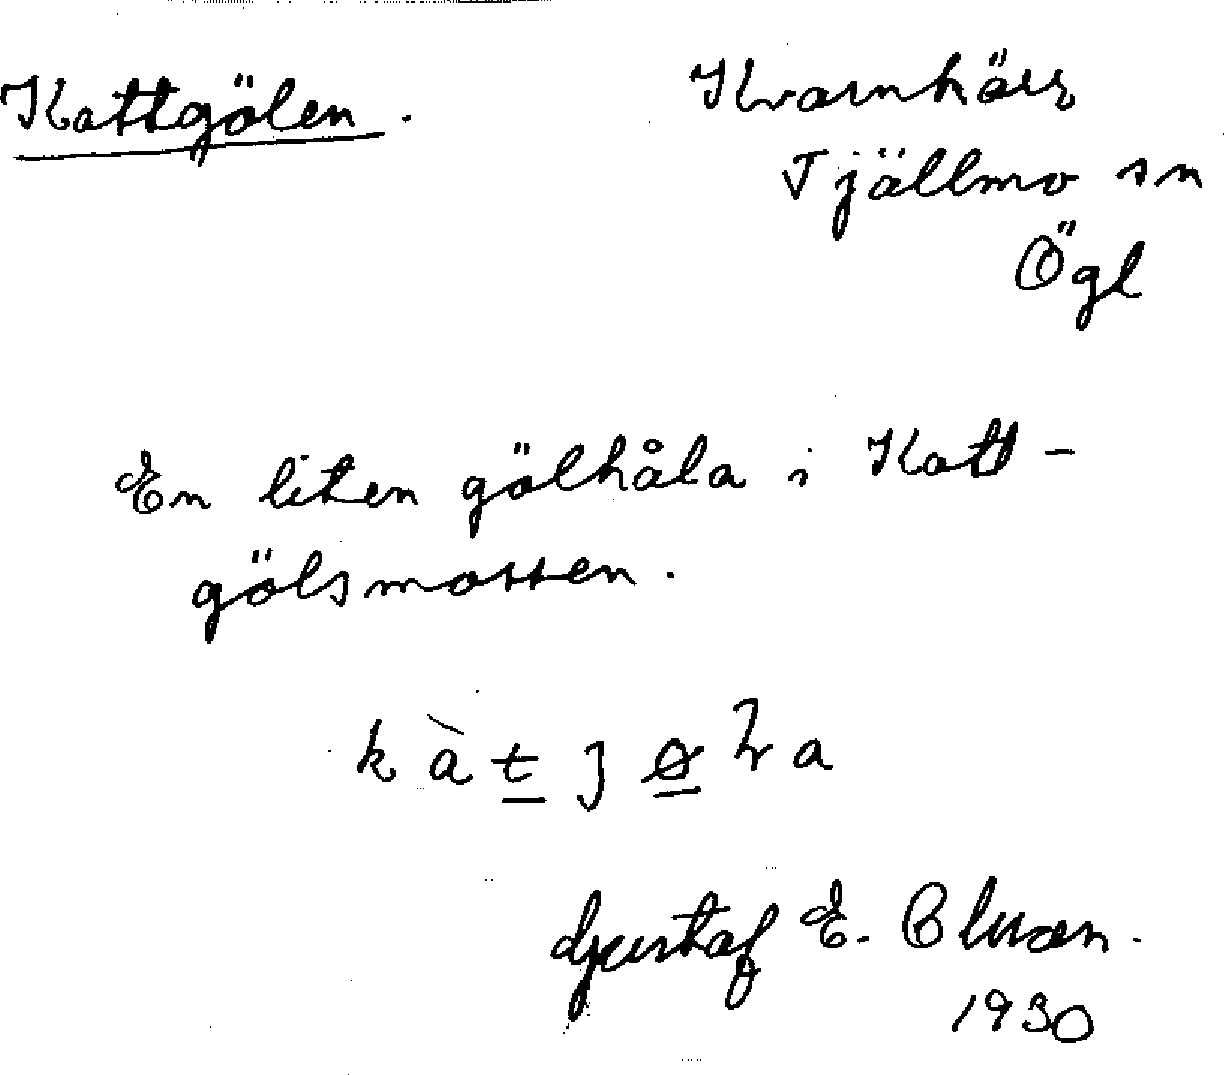 Kattgölen.
Kvarnkärr
Tjällmo sn
Ögl
En liten gölhåla i Katt-
gölsmossen.
Gustaf E.
1930